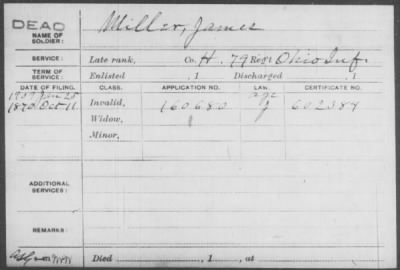 DEAD
NAME OF SOLDIER: Miller, James
SERVICE: Late rank, Co. H. 79 Reg't Ohio Inf.
TERM OF SERVICE: Enlisted , 1 Discharged , 1
DATE OF FILING. CLASS. APPLICATION NO. LAW. CERTIFICATE NO.
age
1870 Oct 11 Invalid, 160.680 602384
Widow,
Minor,
ADDITIONAL SERVICES:
REMARKS:
Died , 1 , at